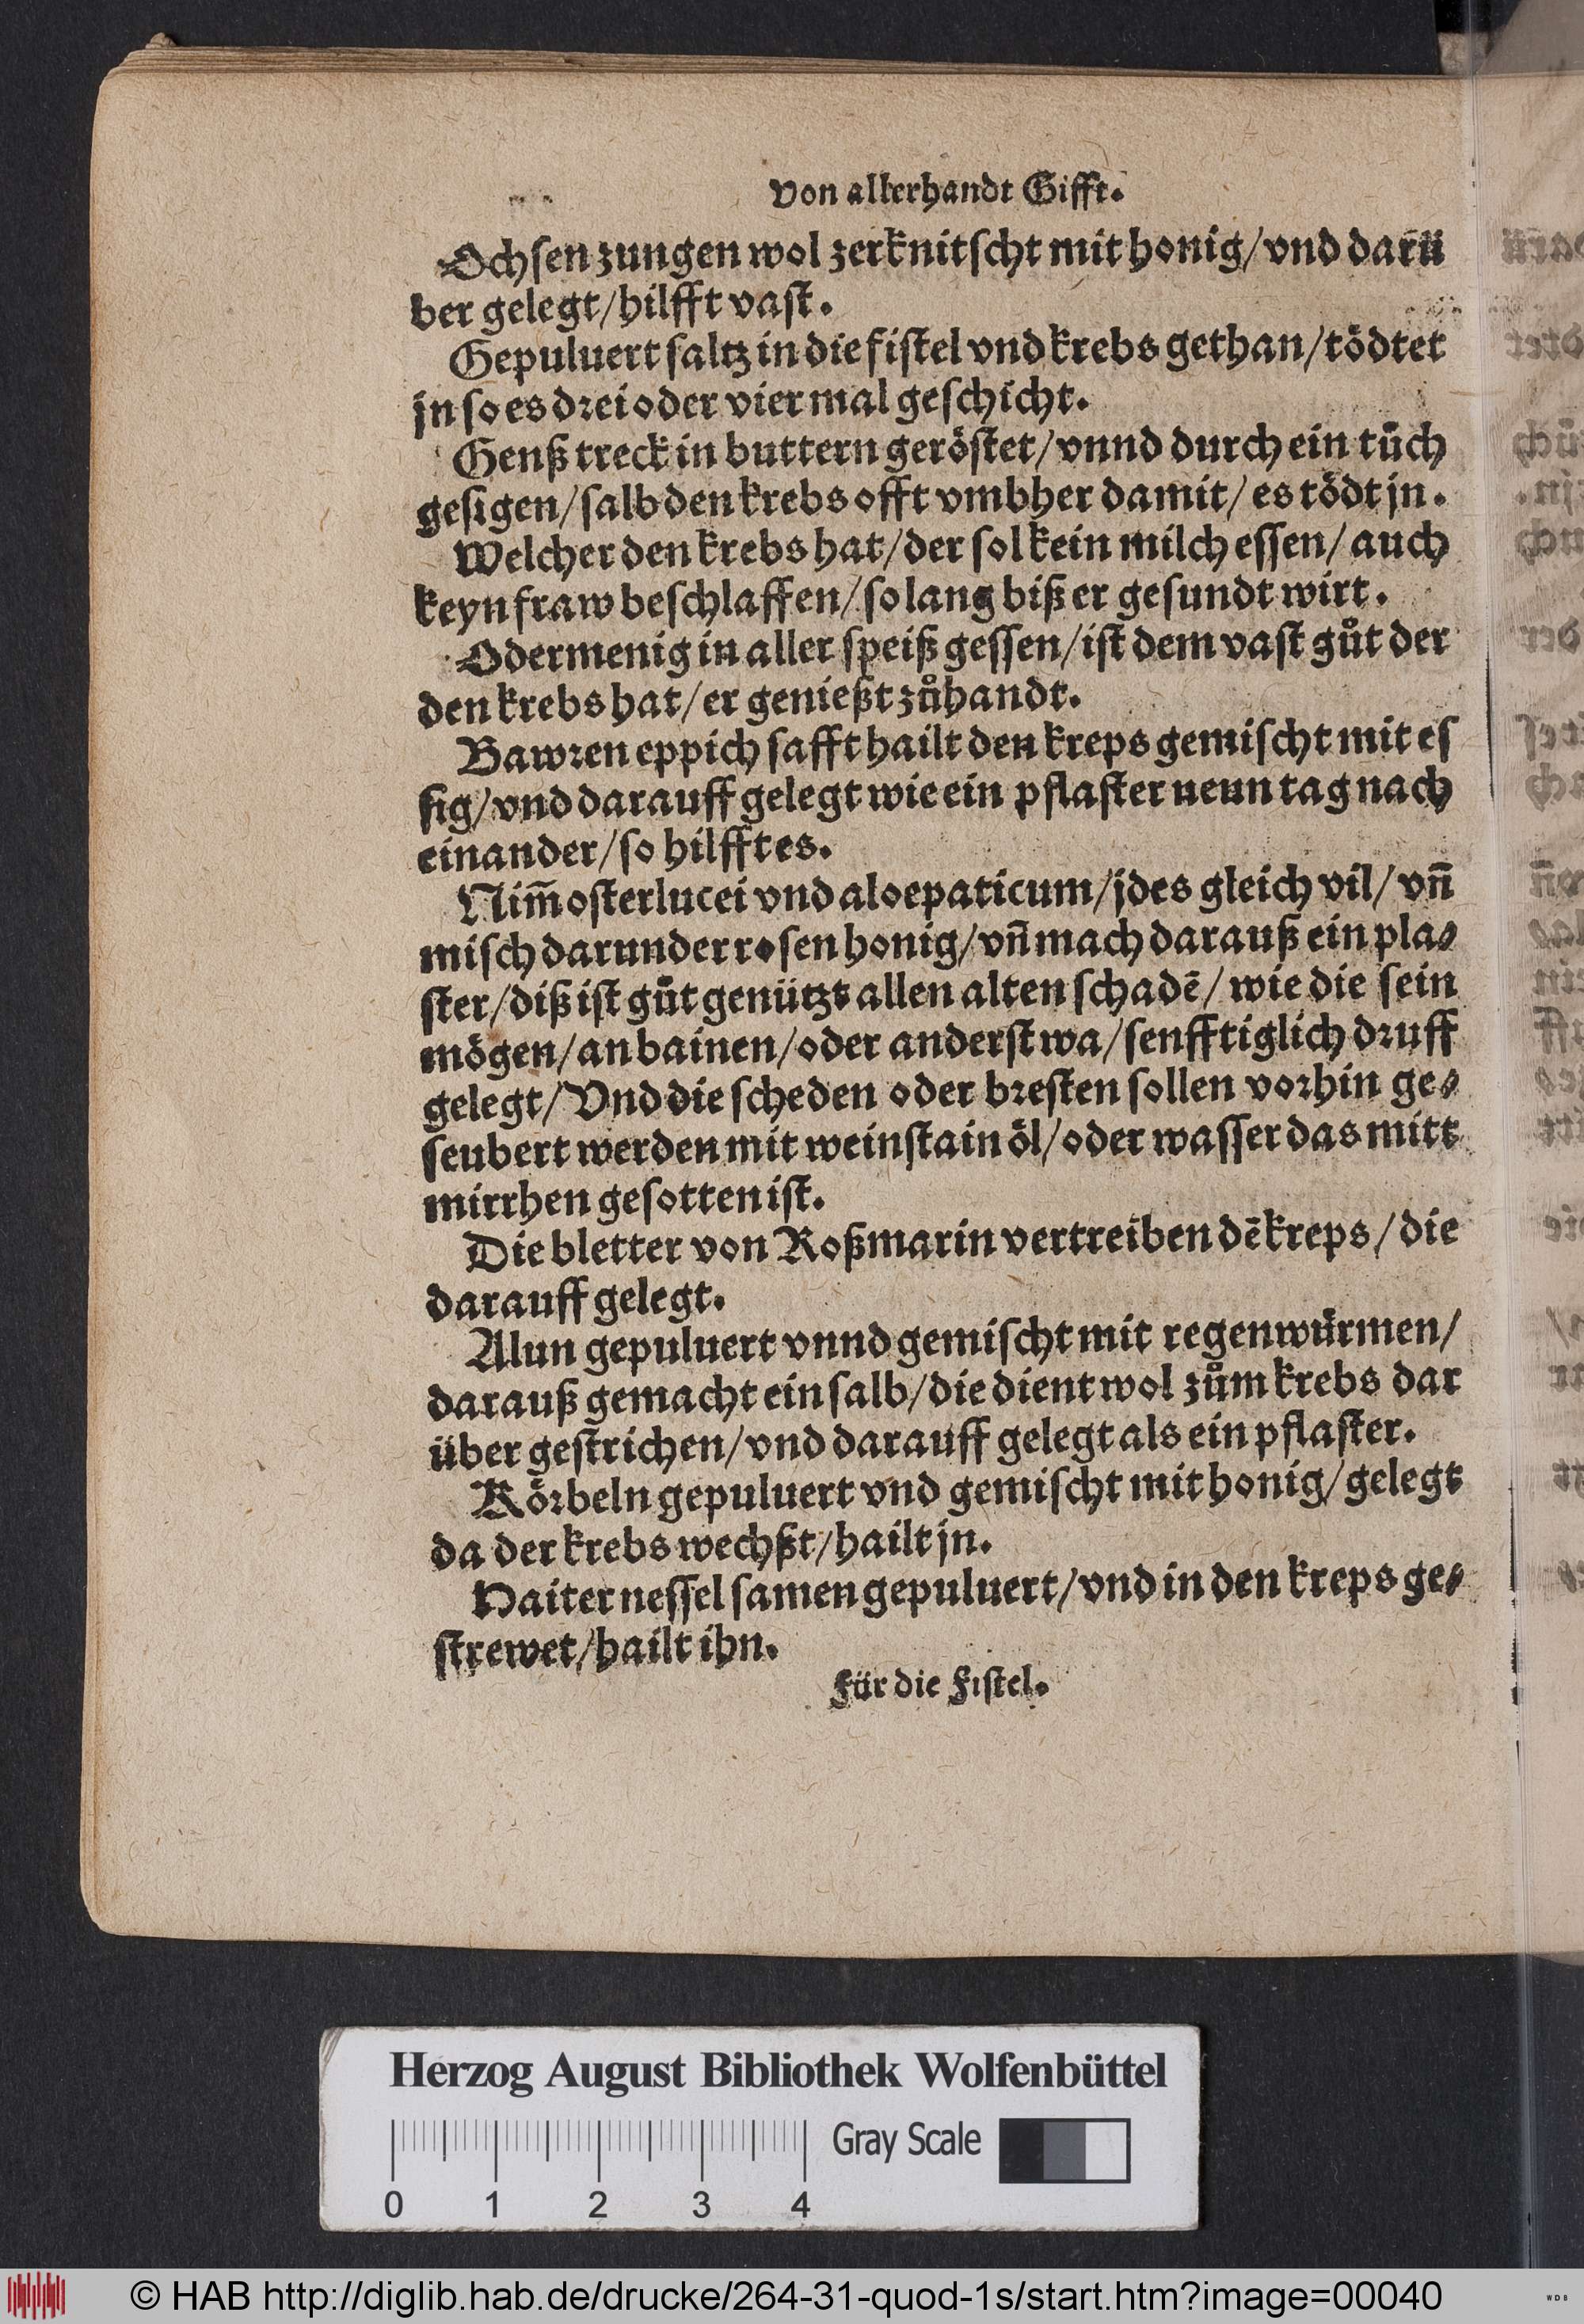 Von allerhandt Gifft.
Ochsen zungen wol zerknitscht mit honig/ vnd darü
ber gelegt/ hilfft vast.
Gepuluert saltz in die fistel vnd krebs gethan/ tödtet
jn so es drei oder vier mal geschicht.
Genß treck in buttern geröstet/ vnnd durch ein tůch
gesigen/ salb den krebs offt vmbher damit/ es tödt jn.
Welcher den krebs hat/ der sol kein milch essen/ auch
keyn fraw beschlaffen/ so lang biß er gesundt wirt.
Odermenig in aller speiß gessen/ ist dem vast gůt der
den krebs hat/ er genießt zůhandt.
Bawren eppich safft hailt den kreps gemischt mit es
sig/ vnd darauff gelegt wie ein pflaster neun tag nach
einander/ so hilfft es.
Nim̃ osterlucei vnd aloepaticum/ jdes gleich vil/ vñ
misch darunder rosen honig/ vñ mach darauß ein pla⸗
ster/ diß ist gůt genützt allen alten schadē/ wie die sein
mögen/ an bainen/ oder anderst wa/ senfftiglich druff
gelegt/ Vnd die scheden oder bresten sollen vorhin ge⸗
seubert werden mit weinstain öl/ oder wasser das mitt
mirrhen gesotten ist.
Die bletter von Roßmarin vertreiben dē kreps/ die
darauff gelegt.
Alun gepuluert vnnd gemischt mit regenwürmen/
darauß gemacht ein salb/ die dient wol zům krebs dar
über gestrichen/ vnd darauff gelegt als ein pflaster.
Körbeln gepuluert vnd gemischt mit honig/ gelegt
da der krebs wechßt/ hailt jn.
Haiter nessel samen gepuluert/ vnd in den kreps ge⸗
strewet/ hailt ihn.
Für die Fistel.
Herzog August Bibliothek Wolfenbüttel
Gray Scale
0 1 2 3 4
© HAB http://diglib.hab.de/drucke/264-31-quod-1s/start.htm?image=00040
WDB